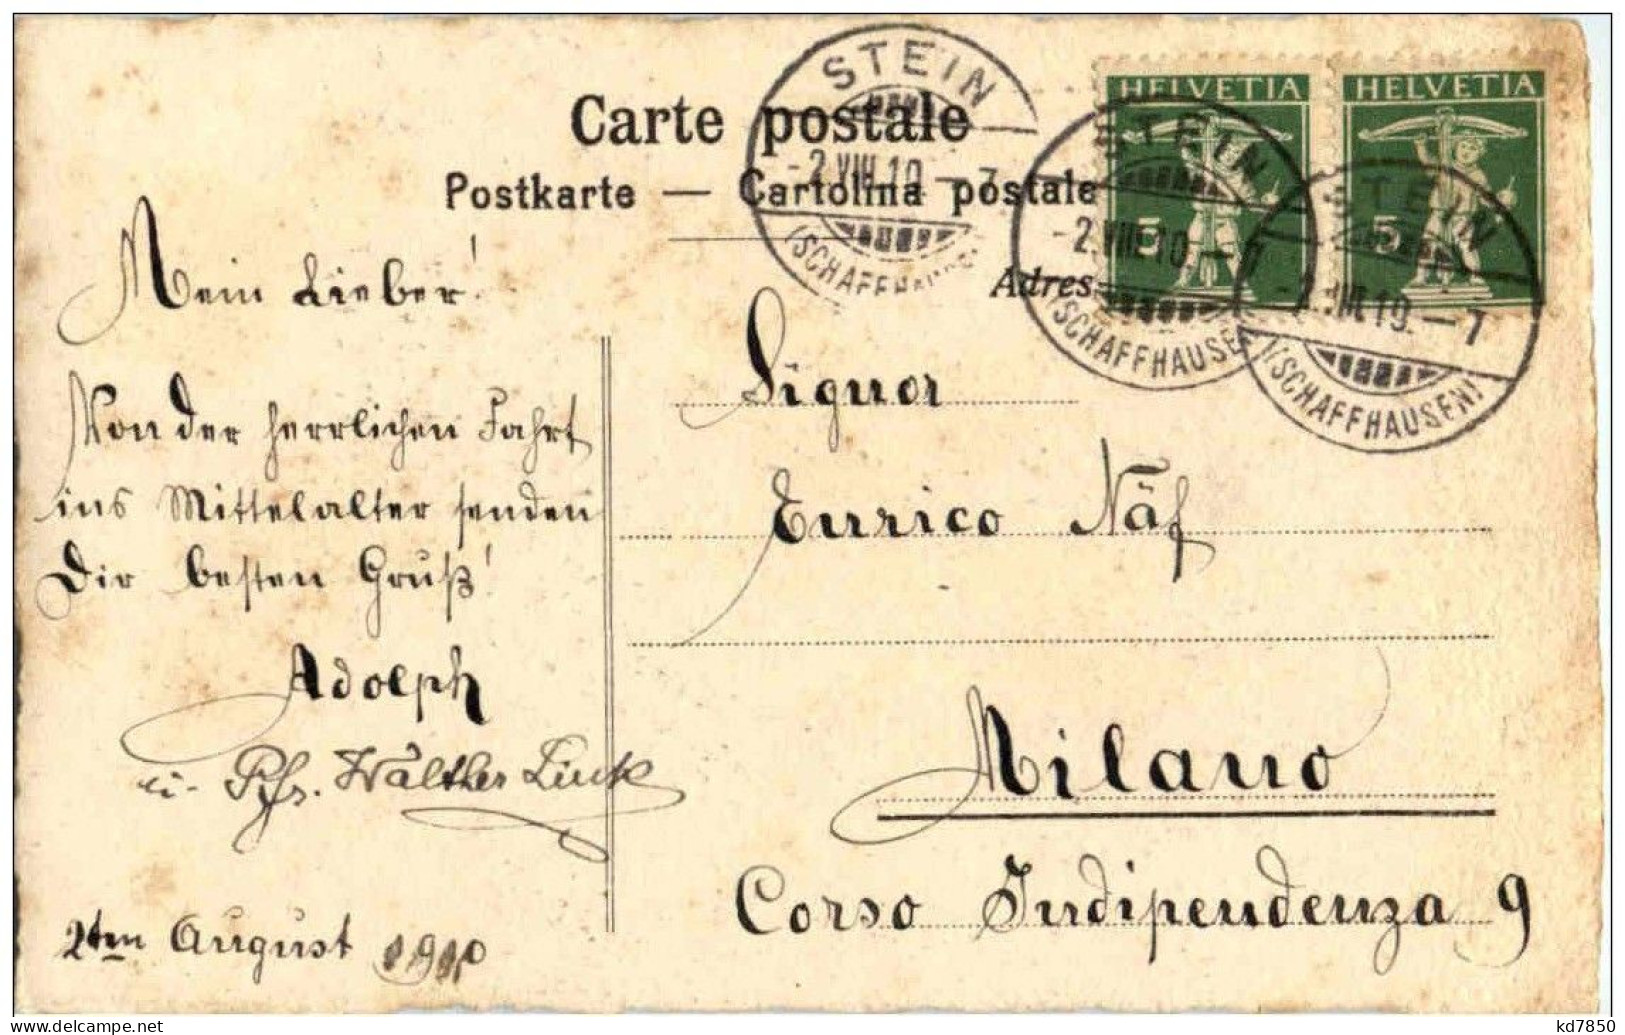 Carte postale
Postkarte — Cartolina postale
Adres
STEIN
-2.VIII.10.-7
(SCHAFFHAUSEN)
STEIN
-2.VIII.10.-7
(SCHAFFHAUSEN)
STEIN
-2.VIII.10.-7
(SCHAFFHAUSEN)
HELVETIA
5
HELVETIA
5
Mein Lieber!
Von der herrlichen Fahrt
ins Mittelalter senden
Dir besten Gruß!
Adolph
u. Walther
2ten August 1910
Signor
Enrico Näf
Milano
Corso Indipendenza 9
delcampe.net
kd7850